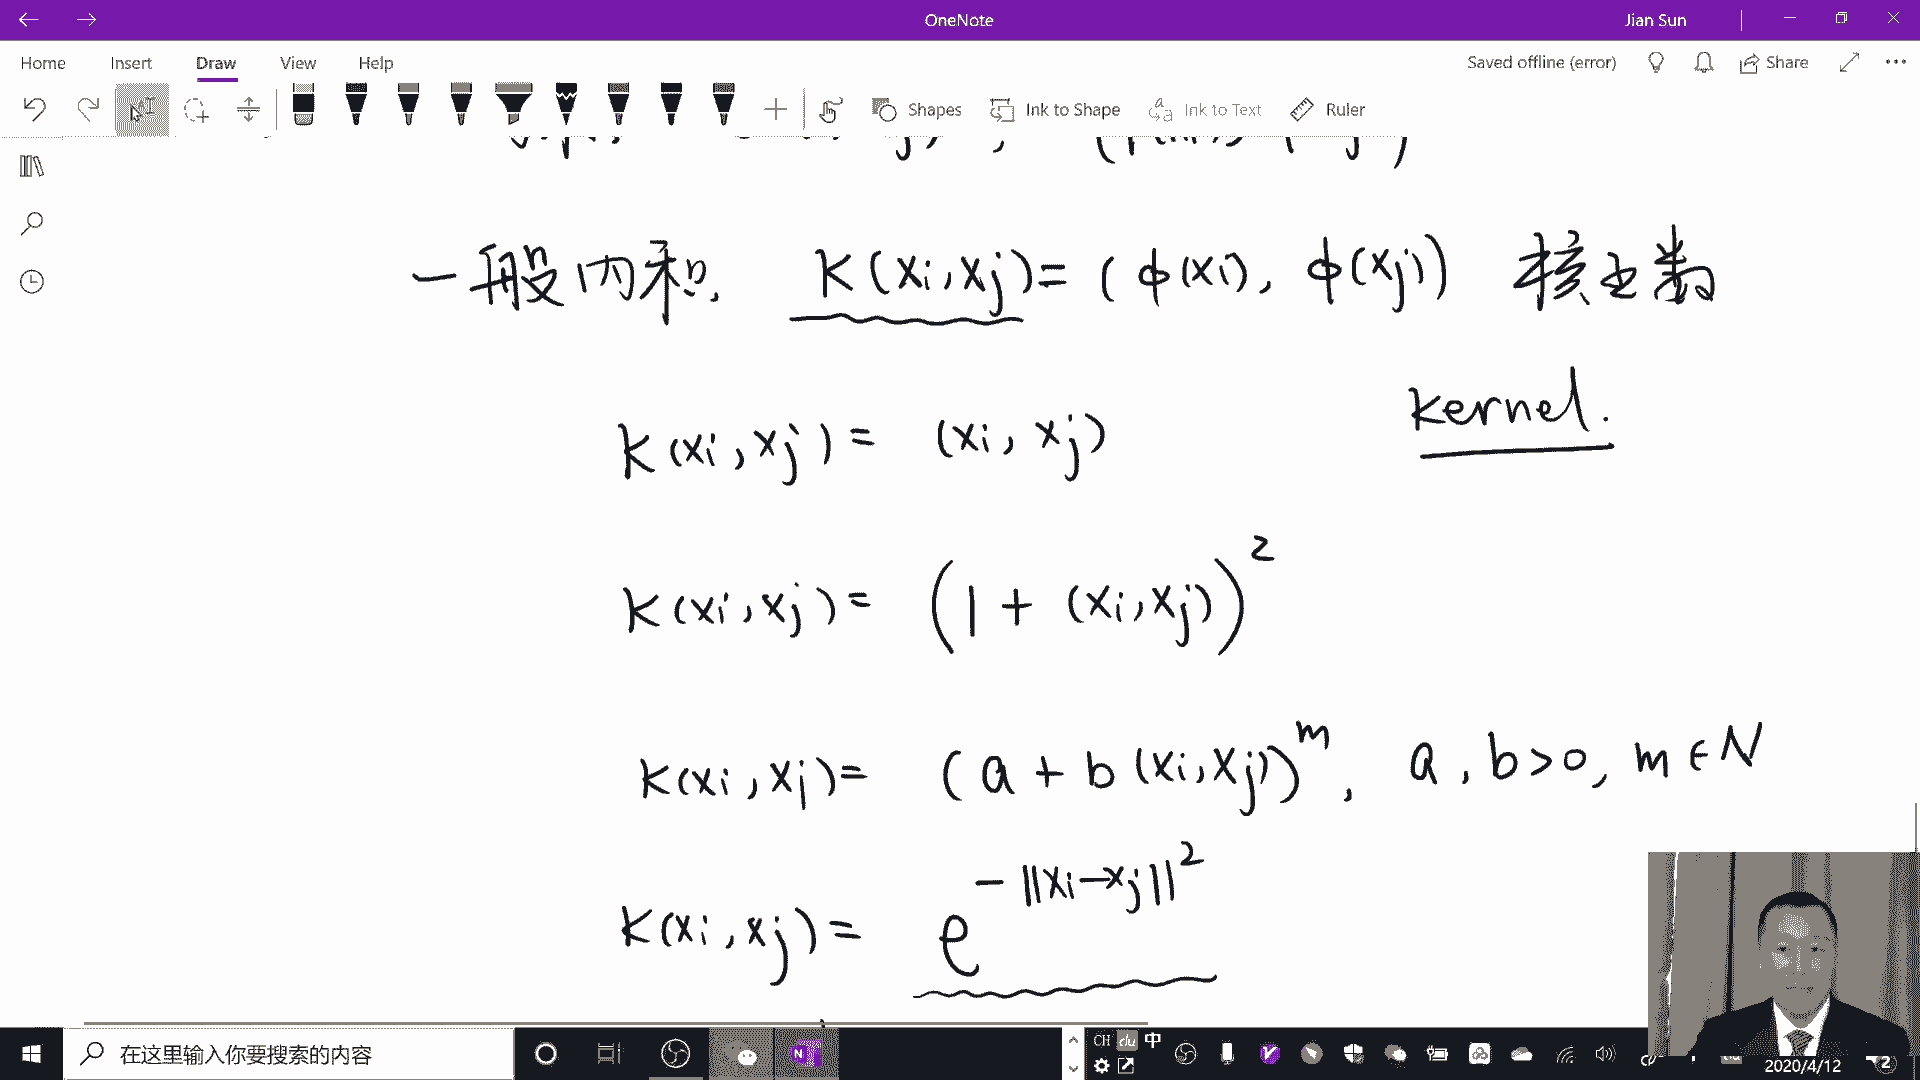 OneNote
Jian Sun
Home Insert Draw View Help
Saved offline (error) Share
Shapes Ink to Shape Ink to Text Ruler
一般内积. K(xi,xj)=(ϕ(xi), ϕ(xj)) 核函数
kernel.
K(xi,xj)= (xi, xj)
K(xi,xj)= (1+(xi,xj))²
K(xi,xj)= (a+b(xi,xj))ᵐ, a,b>0, m∈N
K(xi,xj)= e^-||xi-xj||²
在这里输入你要搜索的内容
CH 中
2020/4/12
2